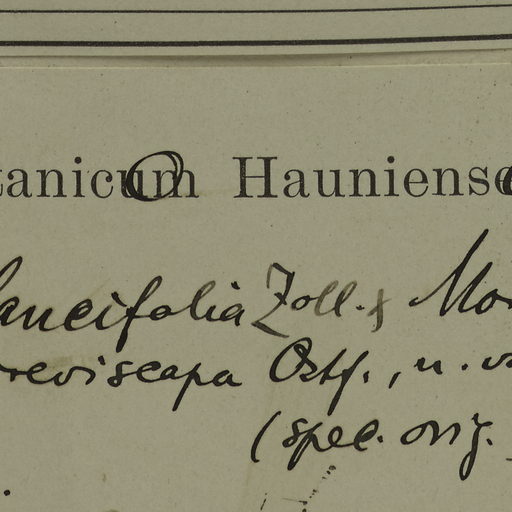 tanicum Hauniense
lancifolia Zoll. & Mor
reviscapa Ostf., n. va
(spec. orig.